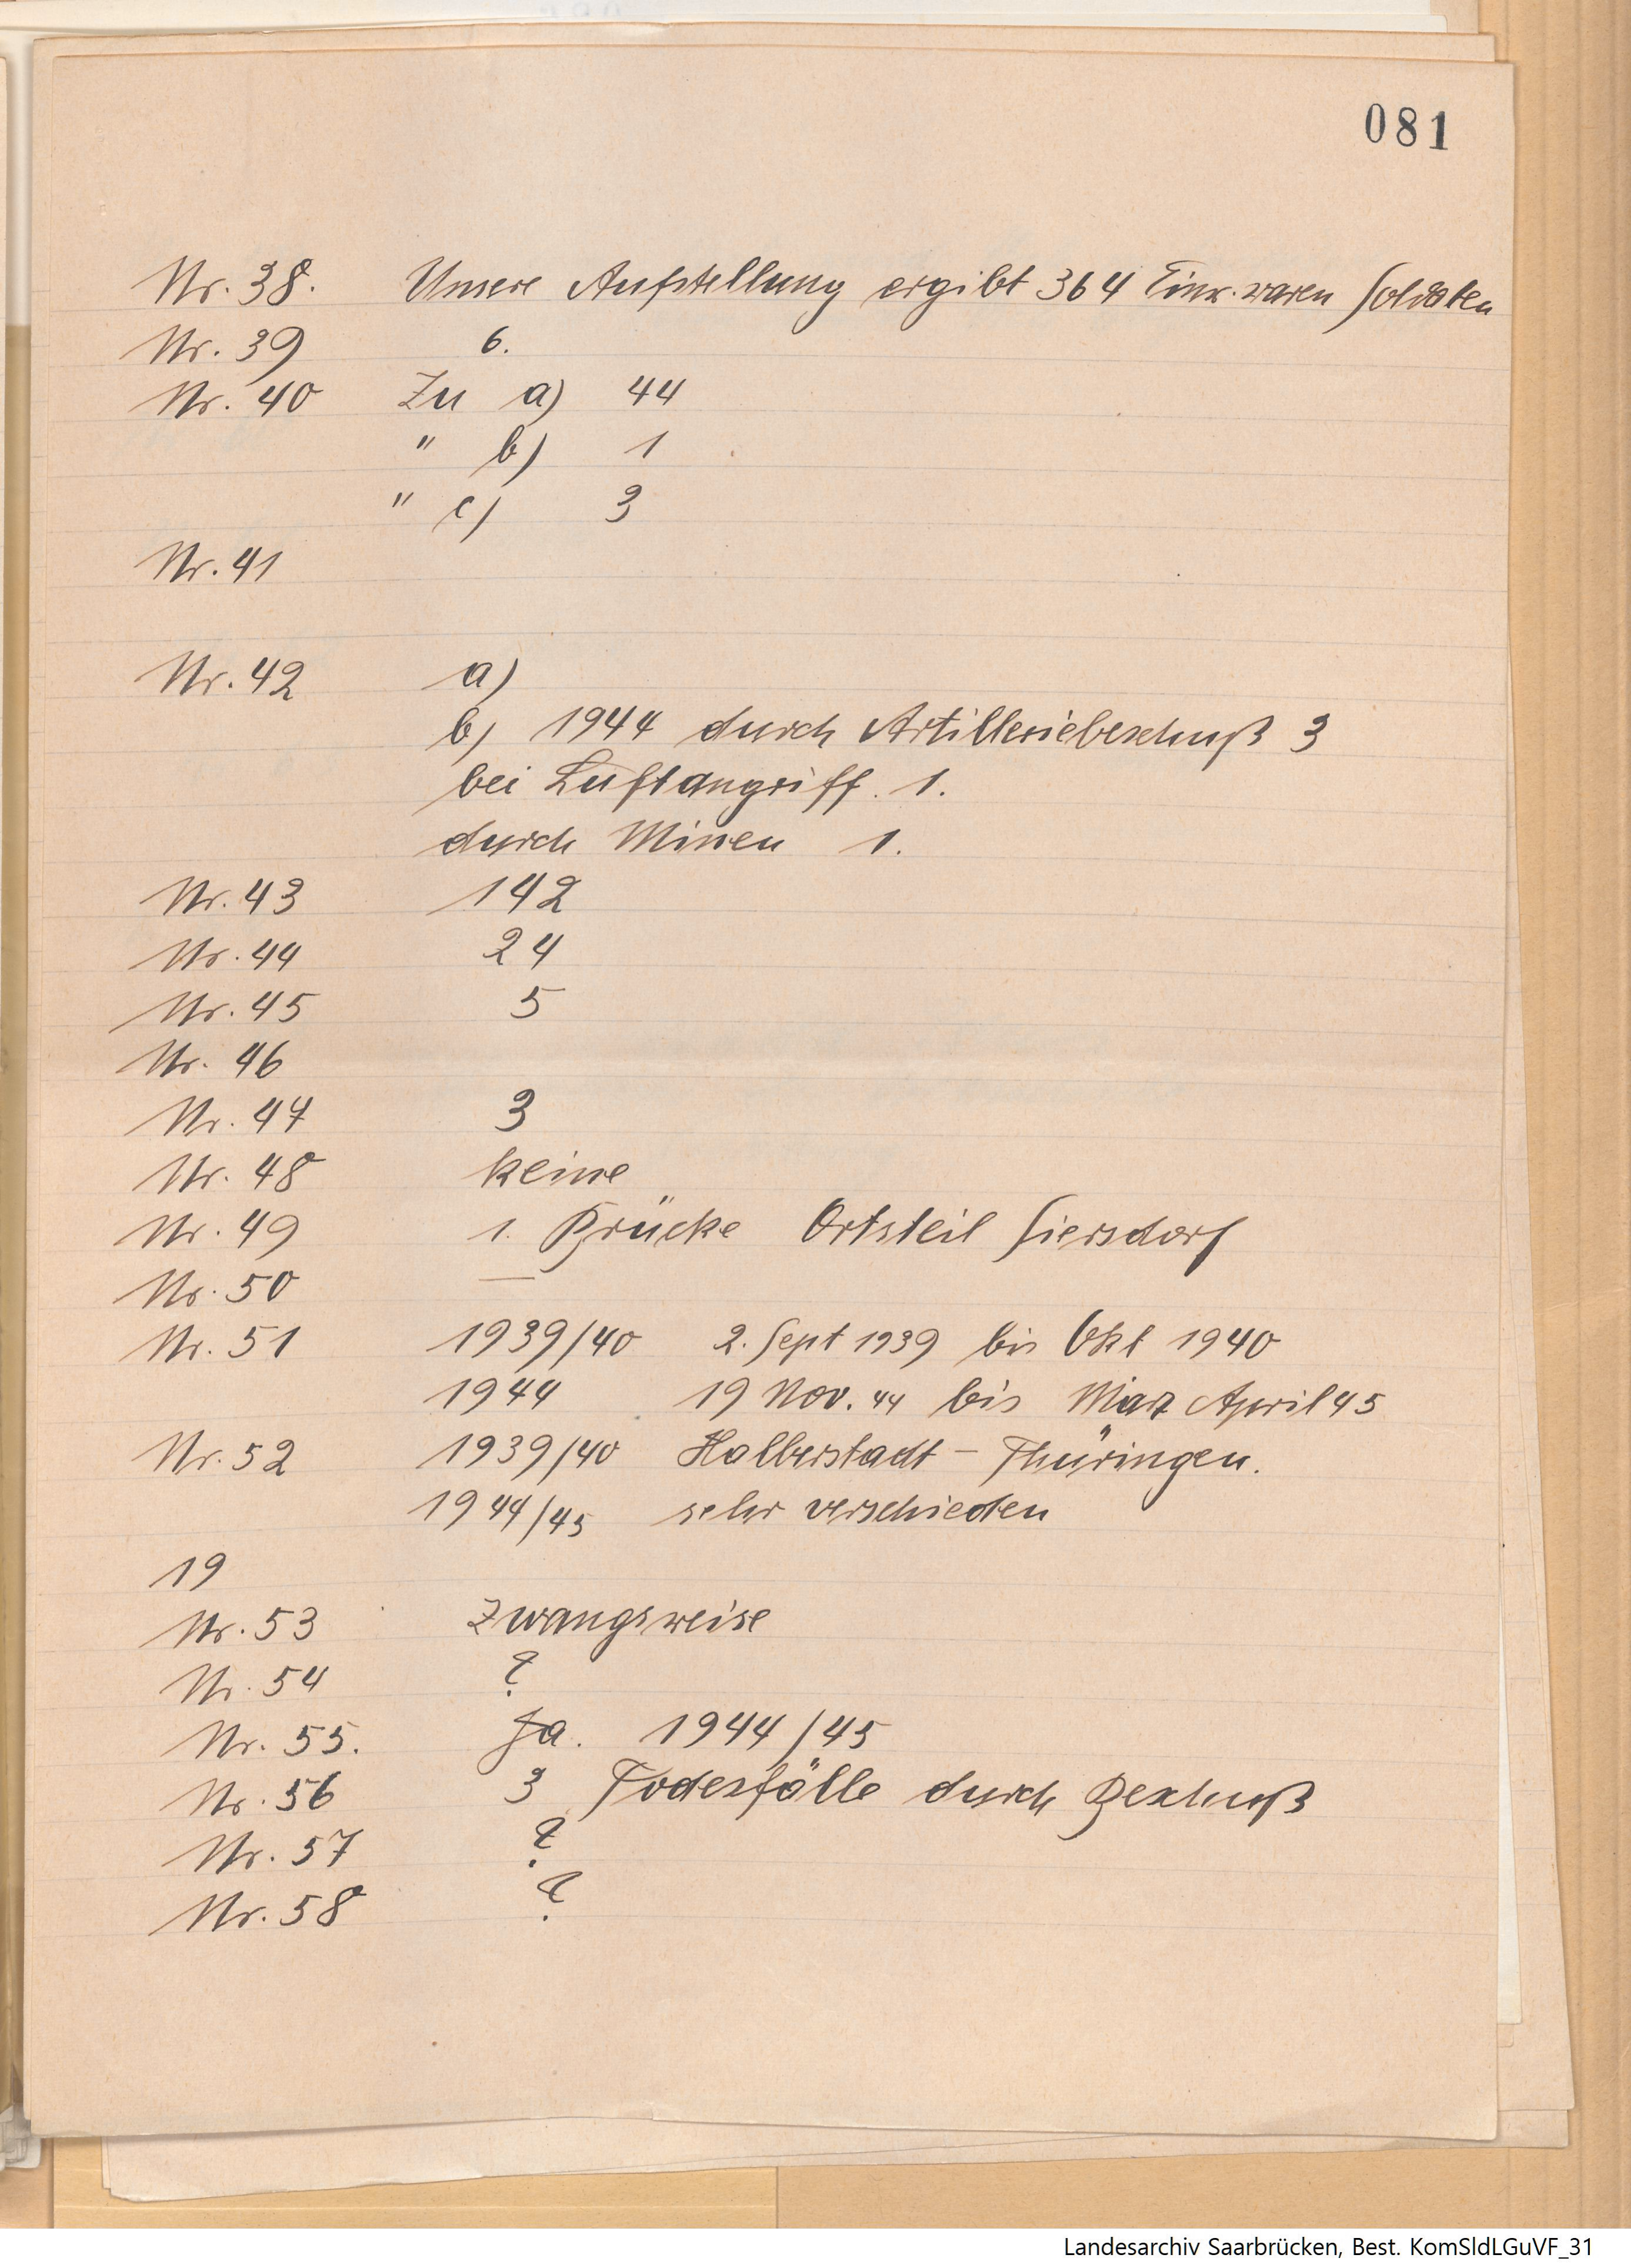 081
Nr. 38. Unsere Aufstellung ergibt 364 Einw. waren Soldaten
Nr. 39 6.
Nr. 40 Zu a) 44
" b) 1
" c) 3
Nr. 41
Nr. 42 a)
b) 1944 durch Artilleriebeschuß 3
bei Luftangriff. 1.
durch Minen 1.
Nr. 43 142
Nr. 44 24
Nr. 45 5
Nr. 46
Nr. 47 3
Nr. 48 keine
Nr. 49 1. Brücke Ortsteil Siersdorf
Nr. 50 —
Nr. 51 1939/40 2. Sept 1939 bis Okt 1940
1944 19 Nov. 44 bis März April 45
Nr. 52 1939/40 Halberstadt – Thüringen.
1944/45 sehr verschieden
19
Nr. 53 Zwangsweise
Nr. 54 ?
Nr. 55. Ja. 1944/45
Nr. 56 3 Todesfälle durch Beschuß
Nr. 57 ?
Nr. 58 ?
Landesarchiv Saarbrücken, Best. KomSldLGuVF_31